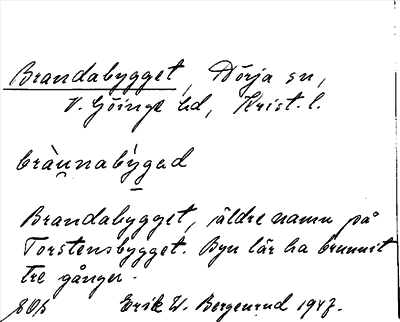 Brandabygget, Dörja sn,
V. Göinge hd, Krist. l.
bràunabỳgəd
Brandabygget, äldre namn på
Torstensbygget. Byn lär ha brunnit
tre gånger.
Erik W. Bergenrud 1947.